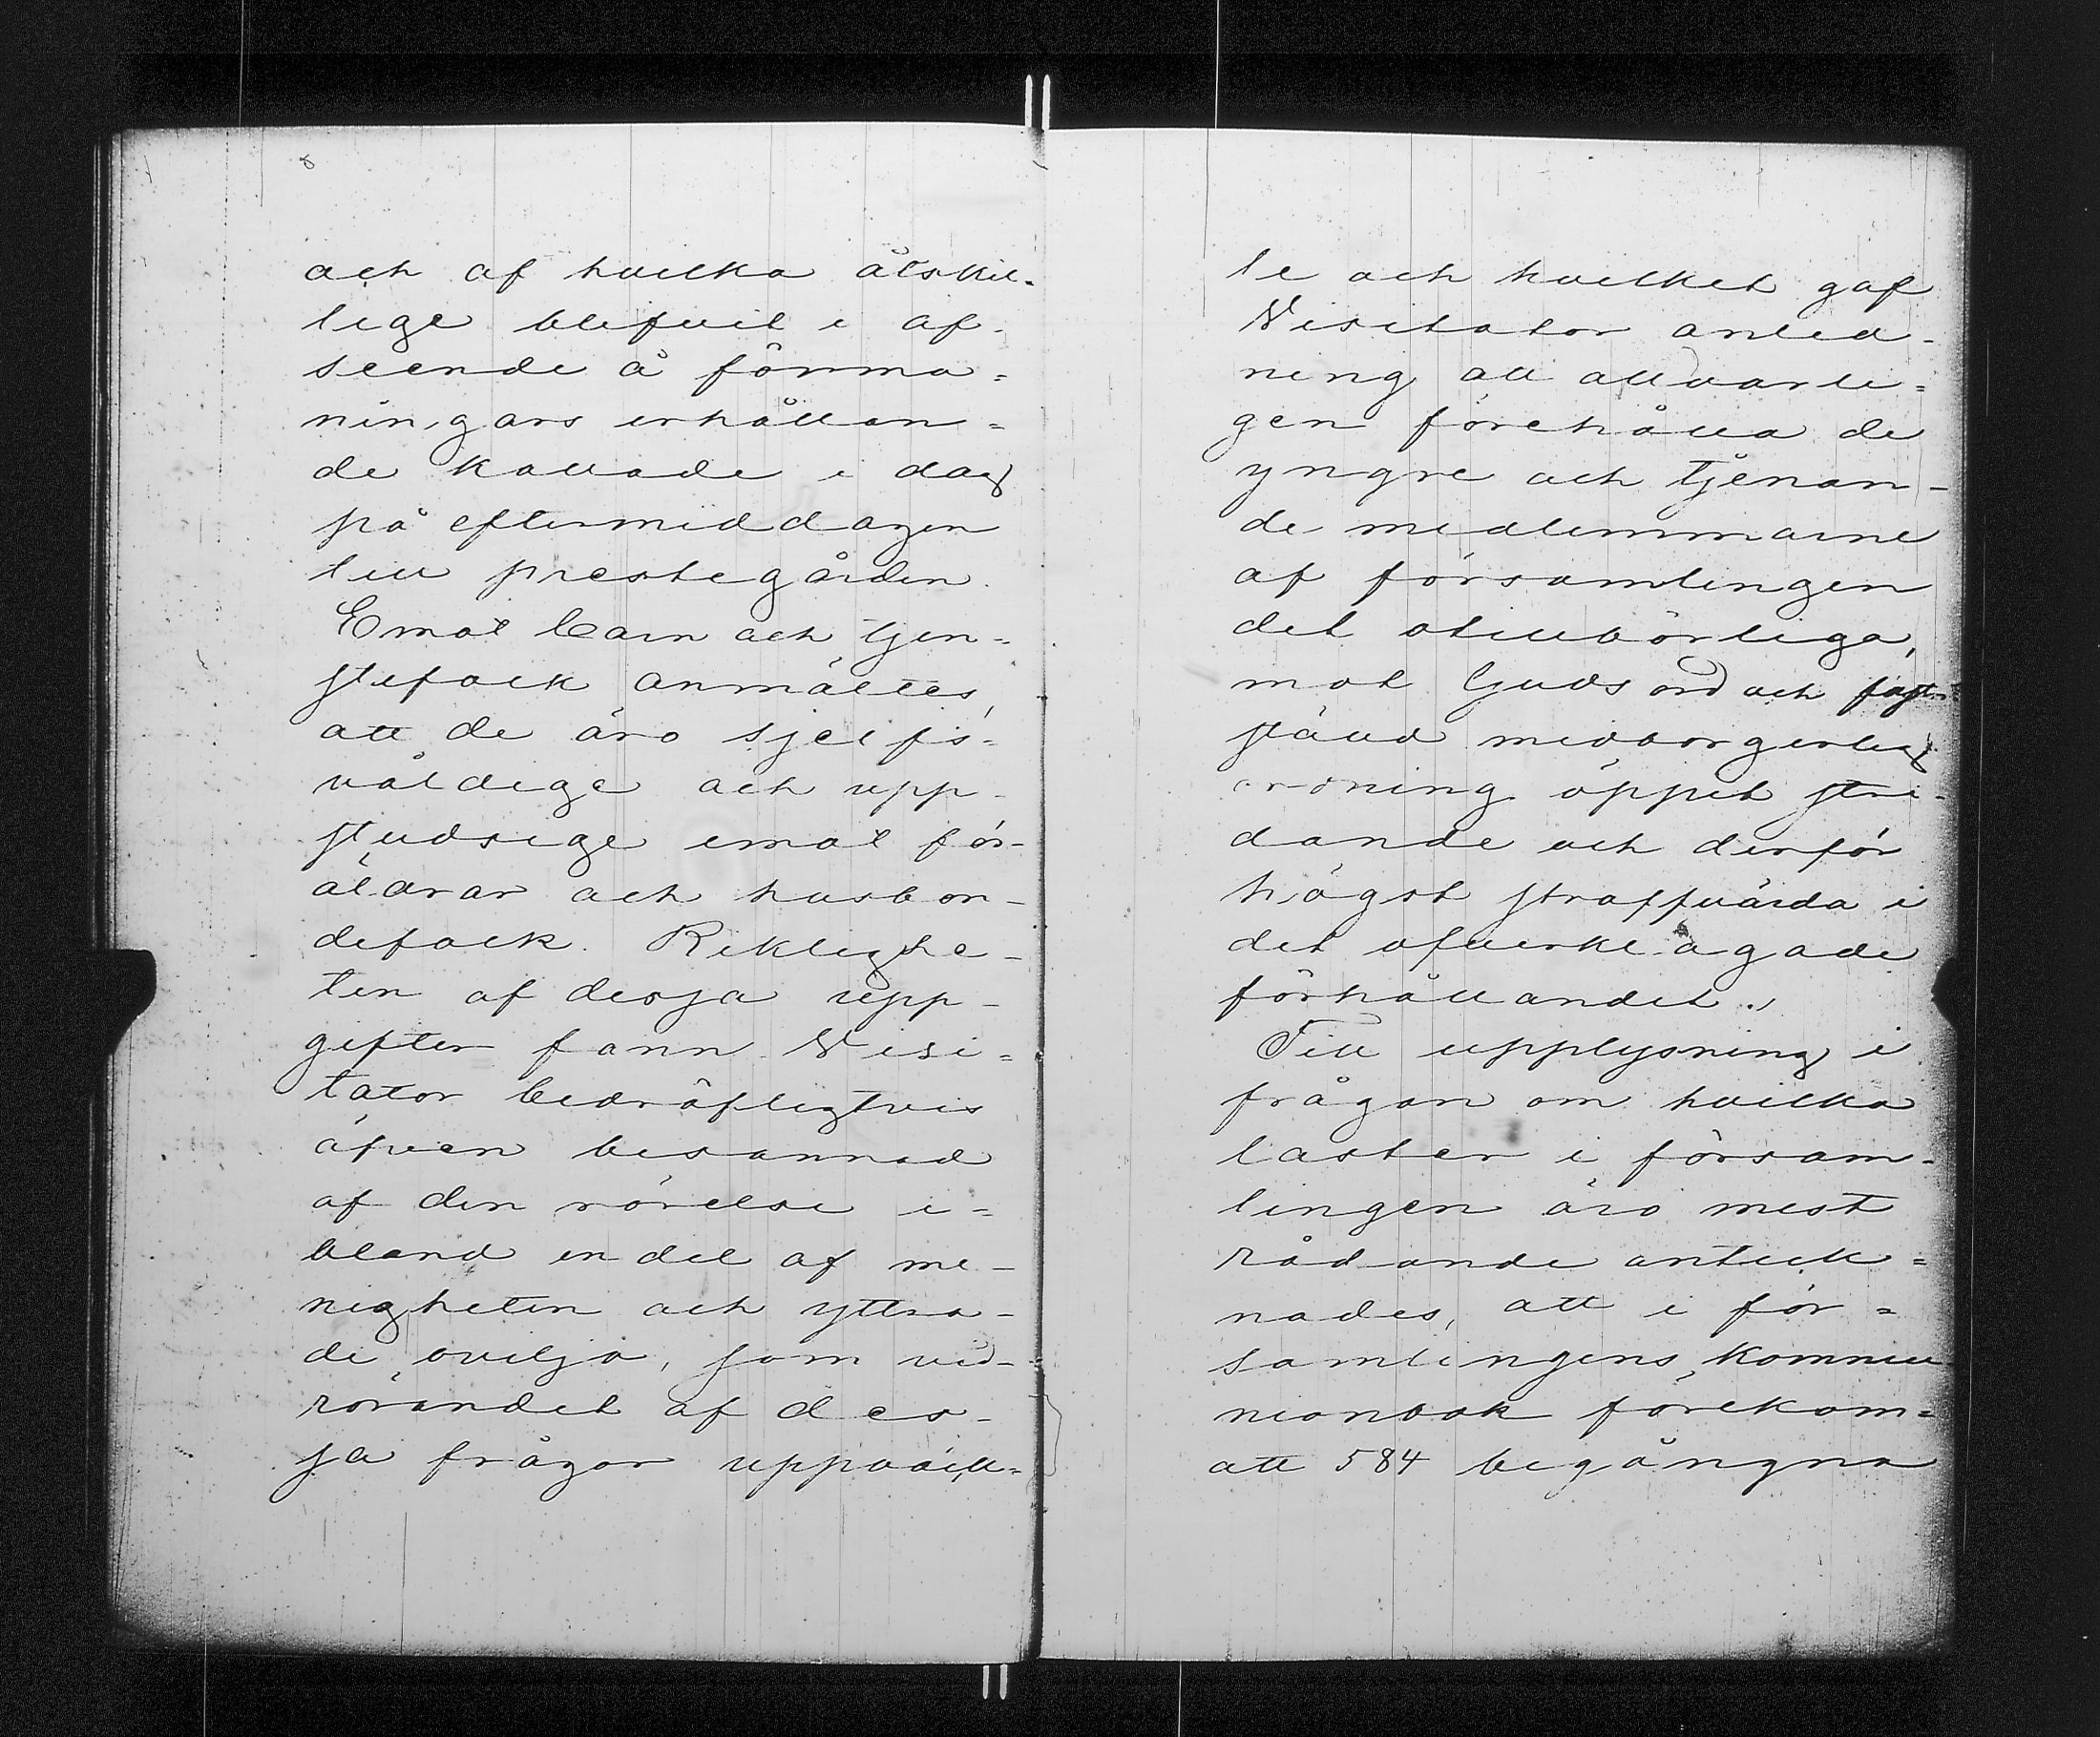 8
och af hvilka åtskil-
lige blifvit i af-
seende å förma=
ningars erhållan=
de kallade i dag
på eftermiddagen
till prestegården.
Emot barn och tjen=
stefolk anmältes,
att de äro sjelfs-
våldige och upp-
studsige emot för-
äldrar och husbon-
defolk. Riktighe-
ten af dessa upp-
gifter fann Visi=
tator bedröfligtvis
äfven besannad
af den rörelse i=
bland en del af me-
nigheten och yttra-
de ovilja, som vid-
rörandet af des-
sa frågor uppväck-
te och hvilket gaf
Visitator anled-
ning att allvarli=
gen förehålla de
yngre och tjenan-
de medlemmarne
af församlingen
det otillbörliga,
mot Guds ord och fast-
stäld medborgerlig
ordning öppet stri-
dande och derför
högst straffvärda i
det ofverklagade
förhållandet.
Till upplysning i
frågan om hvilka
laster i försam-
lingen äro mest
rådande anteck=
nades, att i för=
samlingens kommu
nionbok förekom=
att 584 begångna